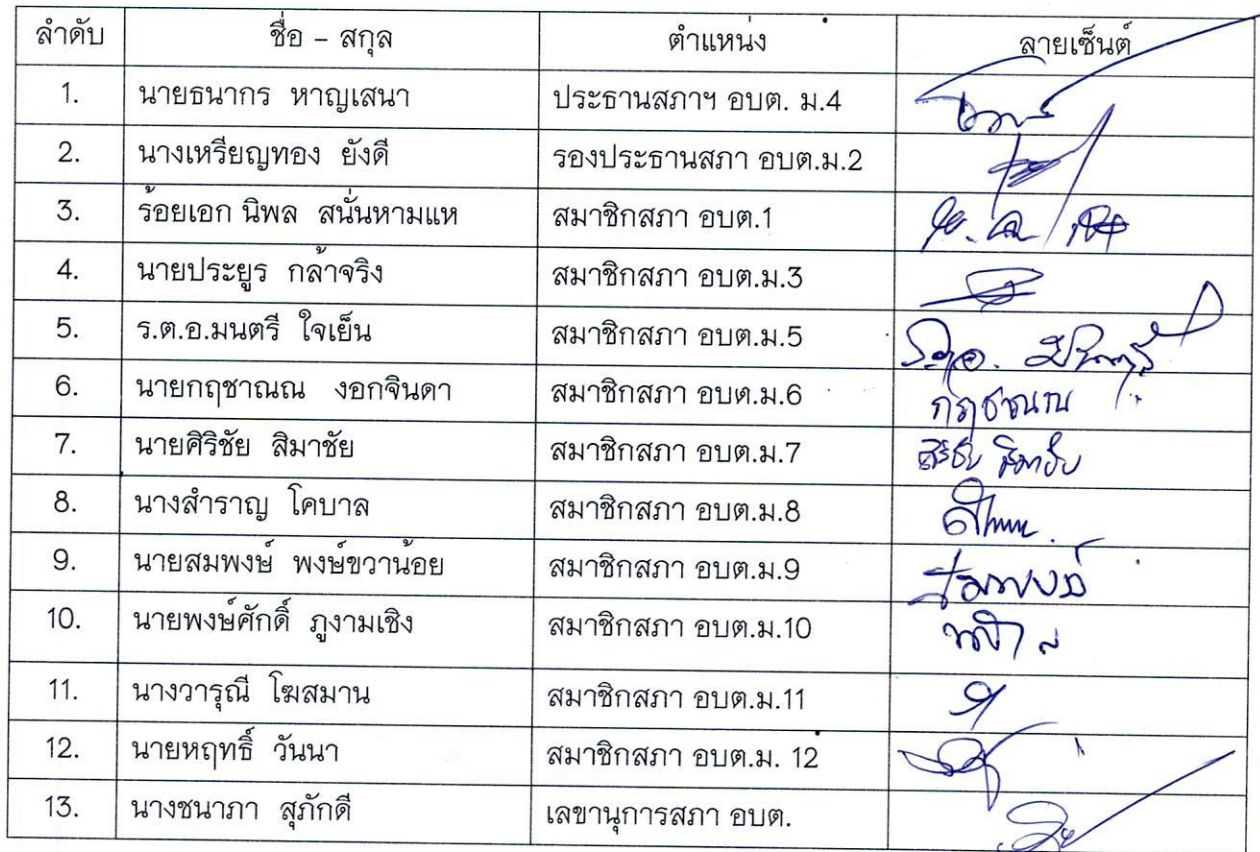 ลำดับ ชื่อ – สกุล ตำแหน่ง ลายเซ็นต์
1. นายธนากร หาญเสนา ประธานสภาฯ อบต. ม.4
2. นางเหรียญทอง ยังดี รองประธานสภา อบต.ม.2
3. ร้อยเอก นิพล สนั่นหามแห สมาชิกสภา อบต.1
4. นายประยูร กล้าจริง สมาชิกสภา อบต.ม.3
5. ร.ต.อ.มนตรี ใจเย็น สมาชิกสภา อบต.ม.5
6. นายกฤชาณณ งอกจินดา สมาชิกสภา อบต.ม.6
7. นายศิริชัย สิมาชัย สมาชิกสภา อบต.ม.7 ศิริชัย สิมาชัย
8. นางสำราญ โคบาล สมาชิกสภา อบต.ม.8
9. นายสมพงษ์ พงษ์ขวาน้อย สมาชิกสภา อบต.ม.9 สมพงษ์
10. นายพงษ์ศักดิ์ ภูงามเชิง สมาชิกสภา อบต.ม.10
11. นางวารุณี โฆสมาน สมาชิกสภา อบต.ม.11
12. นายหฤทธิ์ วันนา สมาชิกสภา อบต.ม. 12
13. นางชนาภา สุภักดี เลขานุการสภา อบต.